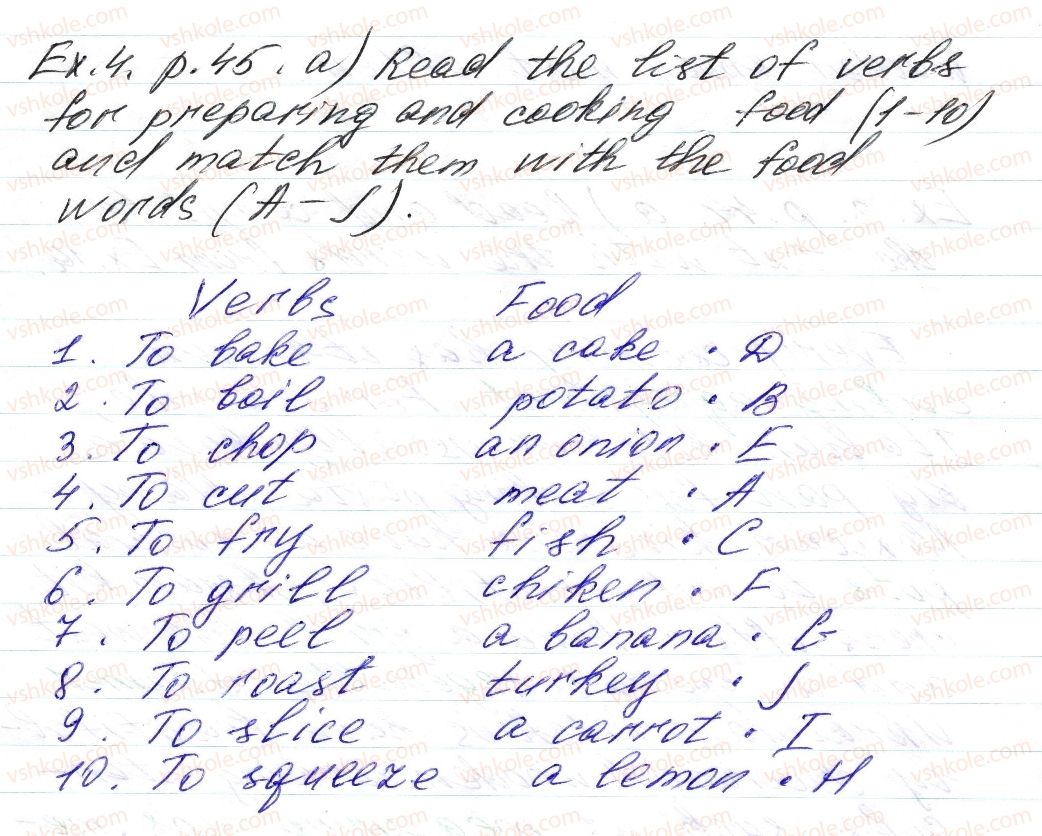 Ex.4. p.45. a) Read the list of verbs
for preparing and cooking food (1-10)
and match them with the food
words (A-J).
Verbs Food
1. To bake a cake . D
2. To boil potato . B
3. To chop an onion . E
4. To cut meat . A
5. To fry fish . C
6. To grill chiken . F
7. To peel a banana . G
8. To roast turkey . J
9. To slice a carrot . I
10. To squeeze a lemon . H